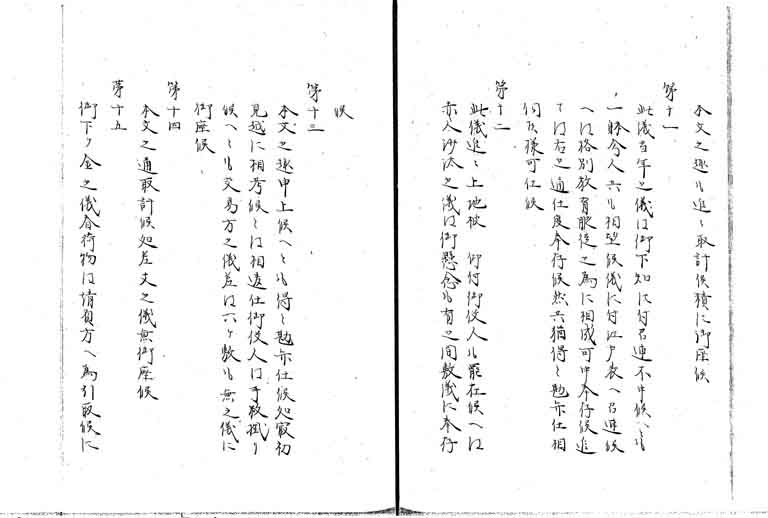 本文之趣も追々取計候積に御座候
第十一
此儀当年之儀は御下知に付召連不申候へとも
一躰今人六も相望候儀に付江戸表へ召連候
へは格別教育服従之為に相成可申本存候追
ては右之通仕度奉存候然共猶得と勘弁仕相
伺候様可仕候
第十二
此儀追々上地被 仰付御役人も罷在候へは
赤人沙汰之儀は御懸念も有之間敷儀に奉存
候
第十三
本文之趣申上候へとも得と勘弁仕候処最初
見越に相考候とは相違仕御役人は手数掛り
候へとも交易方之儀差は六ヶ敷も無之儀に
御座候
第十四
本文之通取計候処差支之儀無御座候
第十五
御下ケ金之儀舎荷物は請負方へ為引取候に